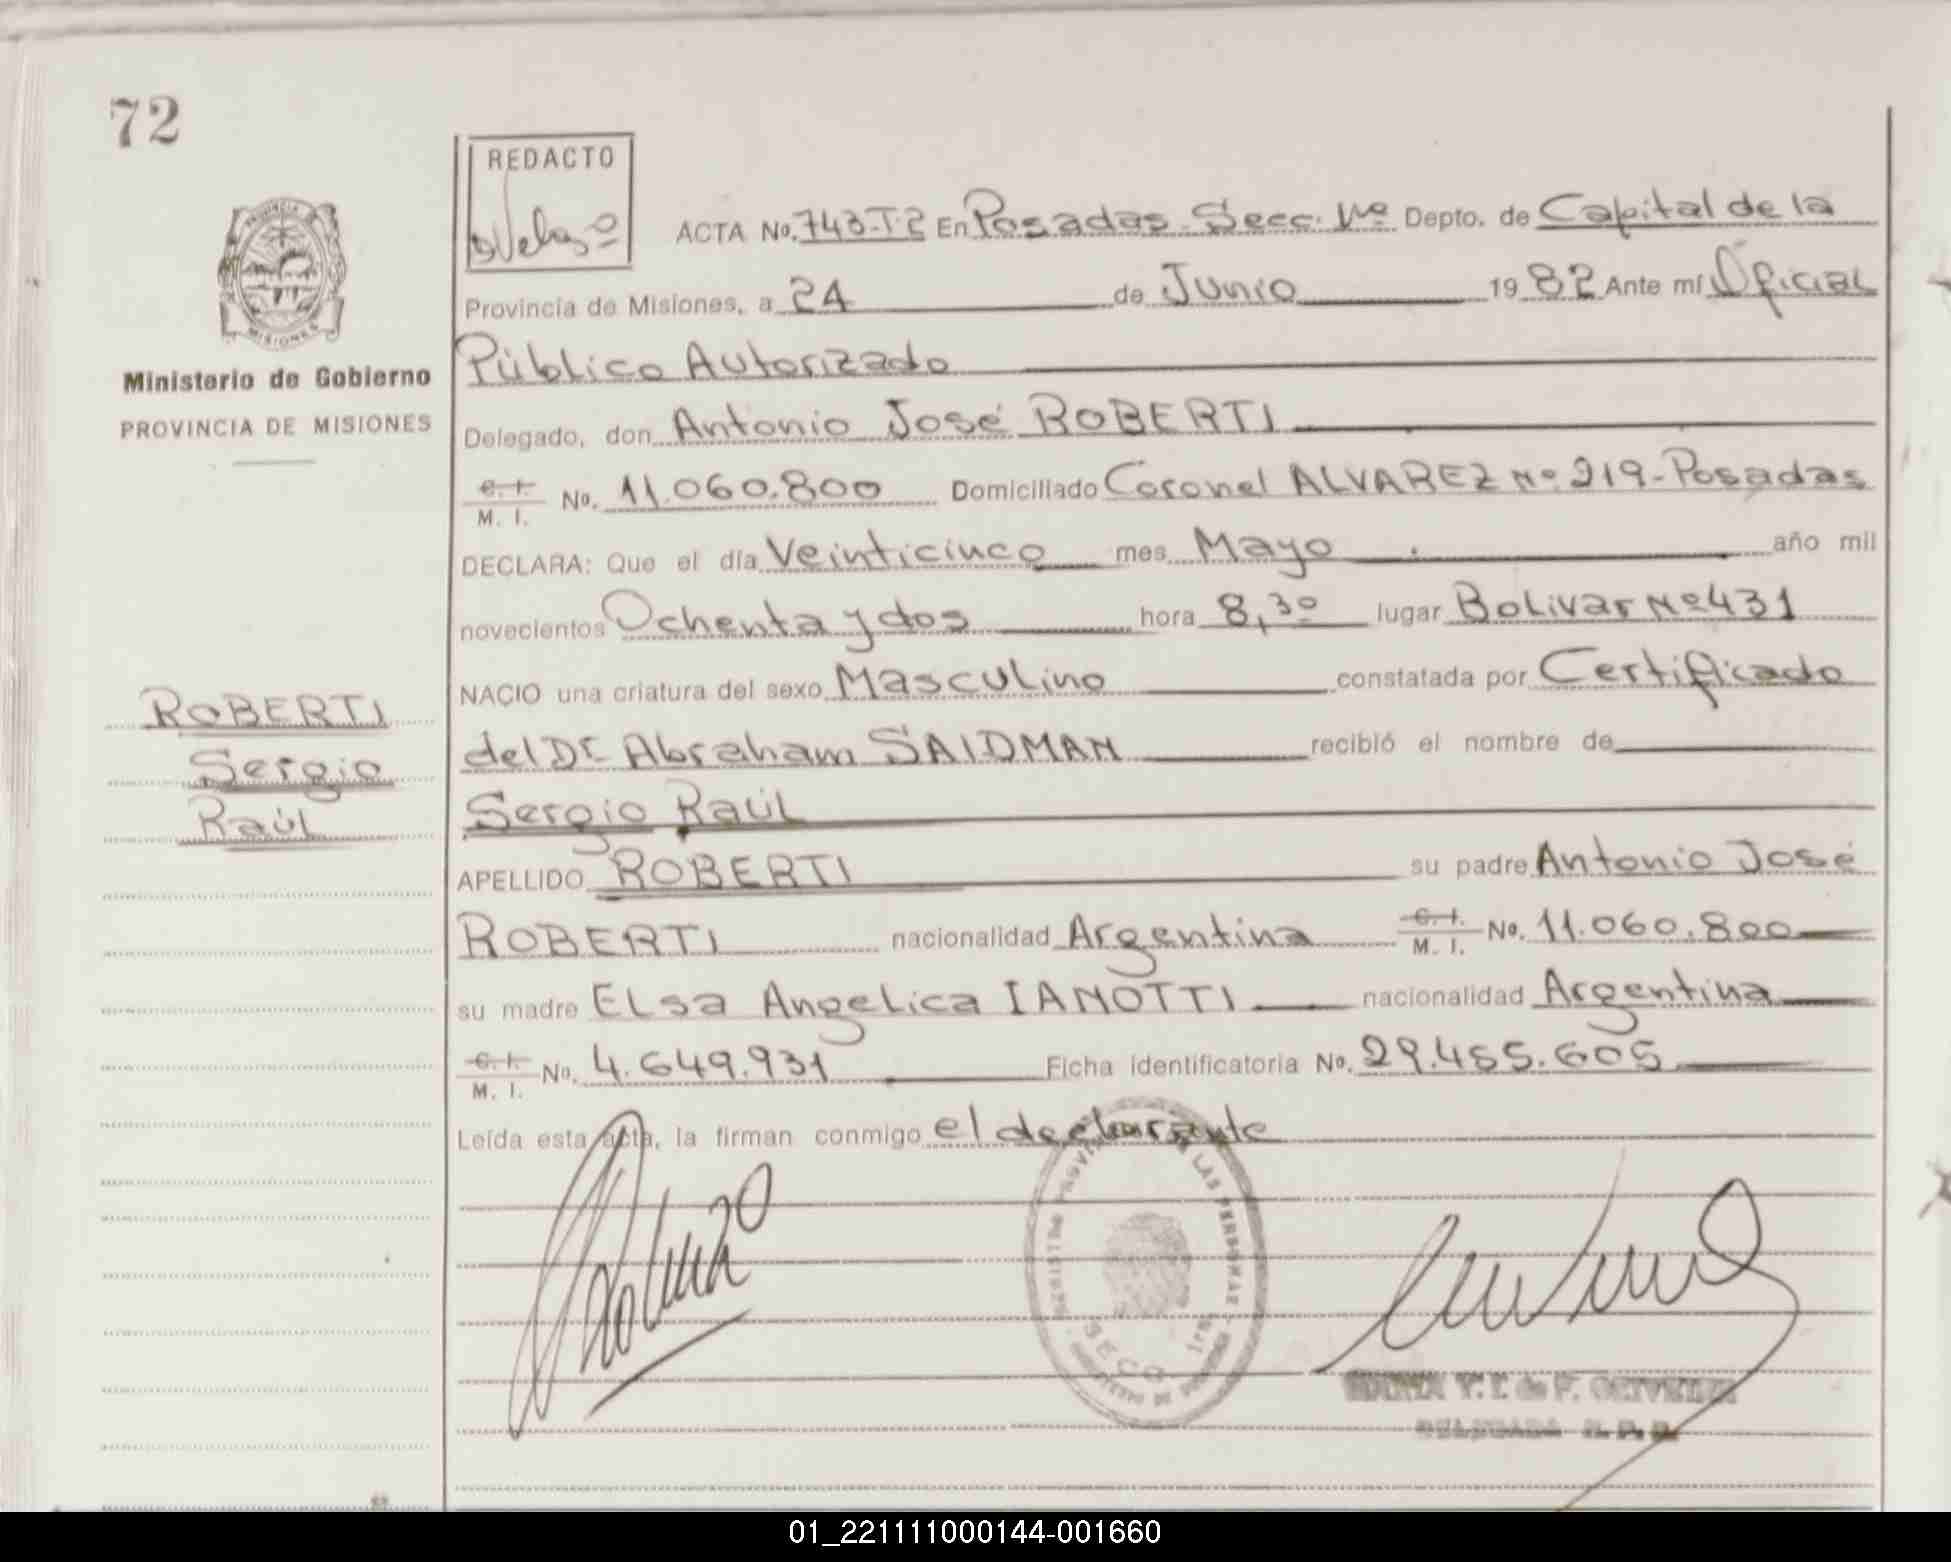 72
REDACTO
PROVINCIA DE
MISIONES
Ministerio de Gobierno
PROVINCIA DE MISIONES
ACTA No. 743-T-2 En Posadas-Secc. 1ra Depto. de Capital de la
Provincia de Misiones, a 24 de Junio 1982 Ante mí Oficial
Público Autorizado
Delegado, don Antonio José ROBERTI
C. I.
M. I. No. 11.060.800 Domiciliado Coronel ALVAREZ Nº 219-Posadas
DECLARA: Que el día Veinticinco mes Mayo año mil
novecientos Ochenta y dos hora 8,30 lugar Bolivar Nº 431
NACIO una criatura del sexo Masculino constatada por Certificado
del Dr Abraham SAIDMAN recibió el nombre de
Sergio Raúl
APELLIDO ROBERTI su padre Antonio José
ROBERTI nacionalidad Argentina C. I.
M. I. No. 11.060.800
su madre Elsa Angelica IANOTTI nacionalidad Argentina
C. I.
M. I. No. 4.649.931 Ficha identificatoria No. 29.455.605
Leída esta acta, la firman conmigo el declarante
ROBERTI
Sergio
Raúl
LAS PERSONAS
SECC 1ra
01_221111000144-001660